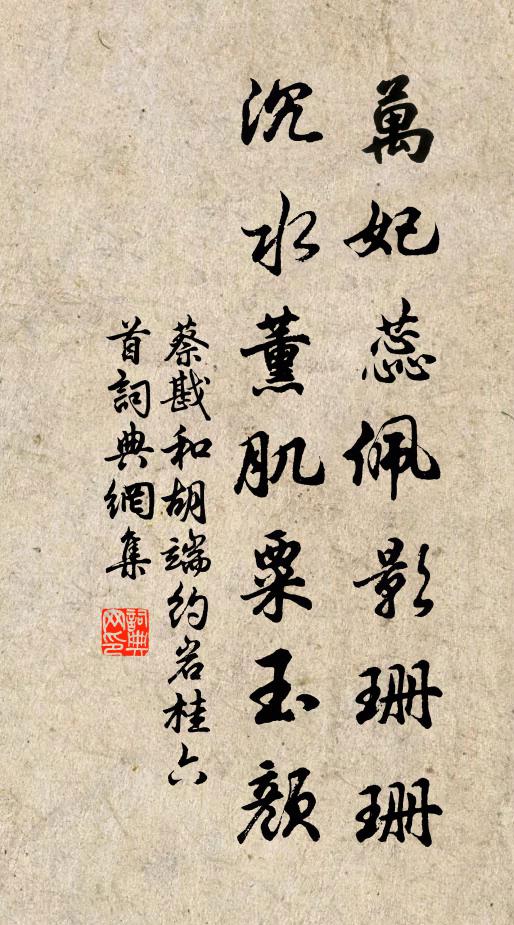 萬妃蕊佩影珊珊
沉水薰肌粟玉顏
蔡戡和胡端約岩桂六
首詞典網集
詞典
网印